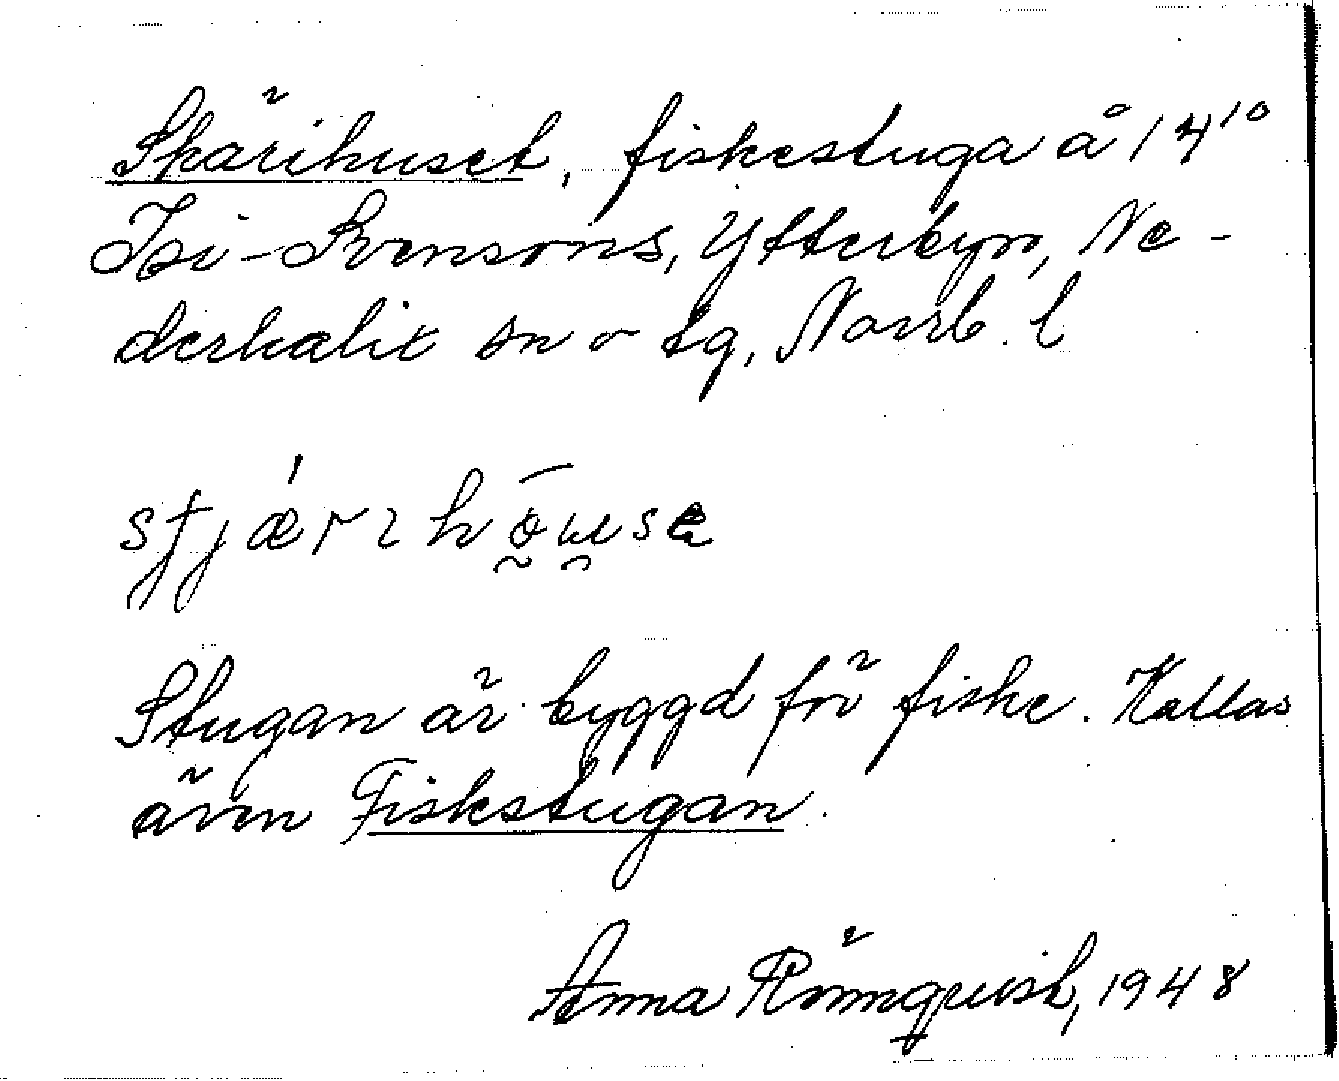 Skärihuset, fiskestuga å 14¹⁰
Isi-Svensons, Ytterbyn, Ne-
derkalix sn o tg, Norrb. l
Stugan är byggd för fiske. Kallas
även Fiskstugan.
Anna Rönnquist, 1948